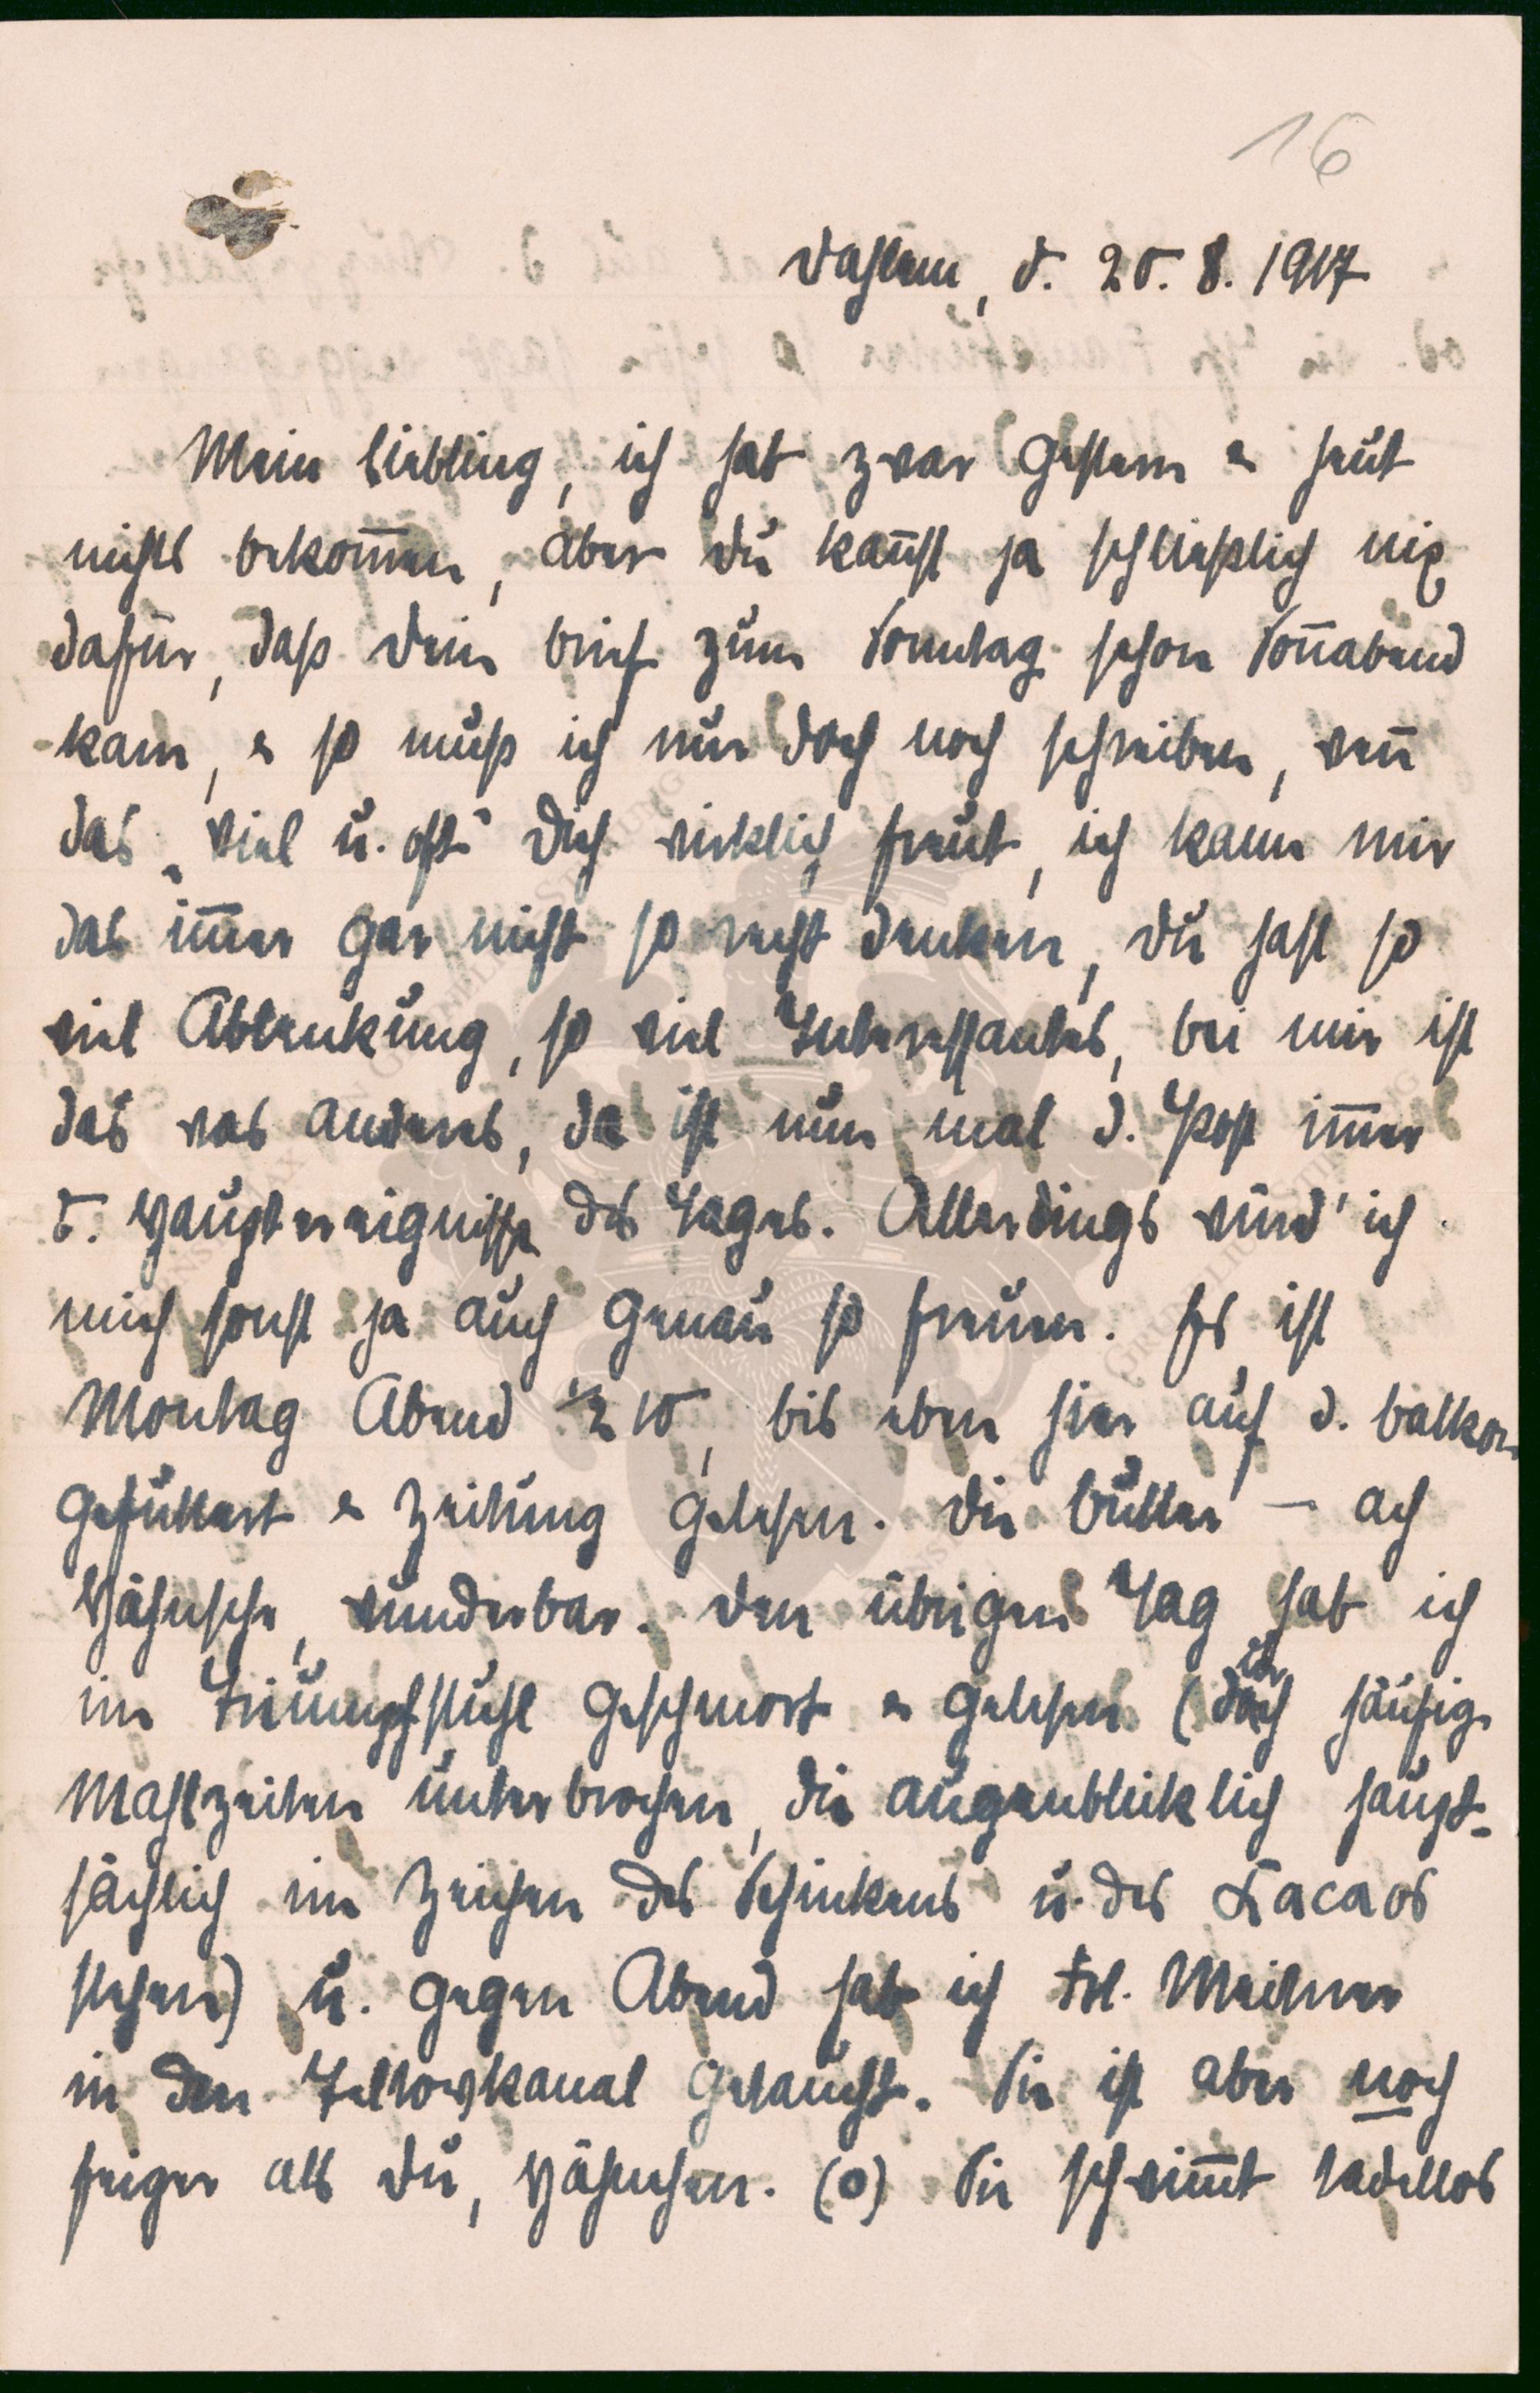 16
Dahlem, d. 20. 8. 1917
Mein Liebling, ich hab zwar gestern & heut
nichts bekom̅en, aber Du kan̅st ja schließlich nix
dafür, daß Dein Brief zum Sonntag schon Son̅abend
kam, & so muß ich nun doch noch schreiben, wen̅
das „viel u. oft“ Dich wirklich freut, ich kann mir
das im̅er gar nicht so recht denken, Du hast so
viel Ablenkung, so viel Interessantes, bei mir ist
das was anderes, da ist nun mal d. Post im̅er
d. Hauptereignisse des Tages. Allerdings würd' ich
mich sonst ja auch genau so freuen. Es ist
Montag Abend ½ 10, bis eben hier auf d. Balkon
gefuttert & Zeitung gelesen. Die Butter — ach
Hähnsche, wunderbar. Den übrigen Tag hab ich
im Triumpfstuhl geschmort & gelesen (doch häufig
Mahlzeiten unterbrochen, die augenblicklich haupt-
sächlich im Zeichen des Schinkens u. des Kacaos
stehen) u. gegen Abend hab ich Frl. Meitner
in den Teltowkanal getaucht. Sie ist aber noch
feiger als Du, Hähnchen. (o) Sie schwim̅t tadellos